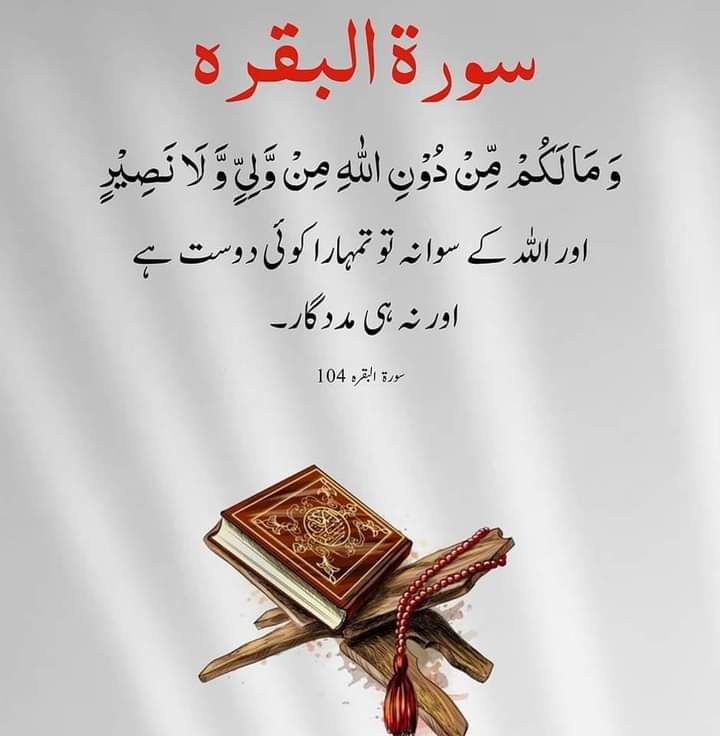 سورة البقره
وَ مَا لَكُمْ مِّنْ دُوْنِ اللّٰهِ مِنْ وَّلِیٍّ وَّ لَا نَصِیْرٍ
اور اللہ کے سوا نہ تو تمہارا کوئی دوست ہے
اور نہ ہی مددگار۔
سورة البقرہ 104